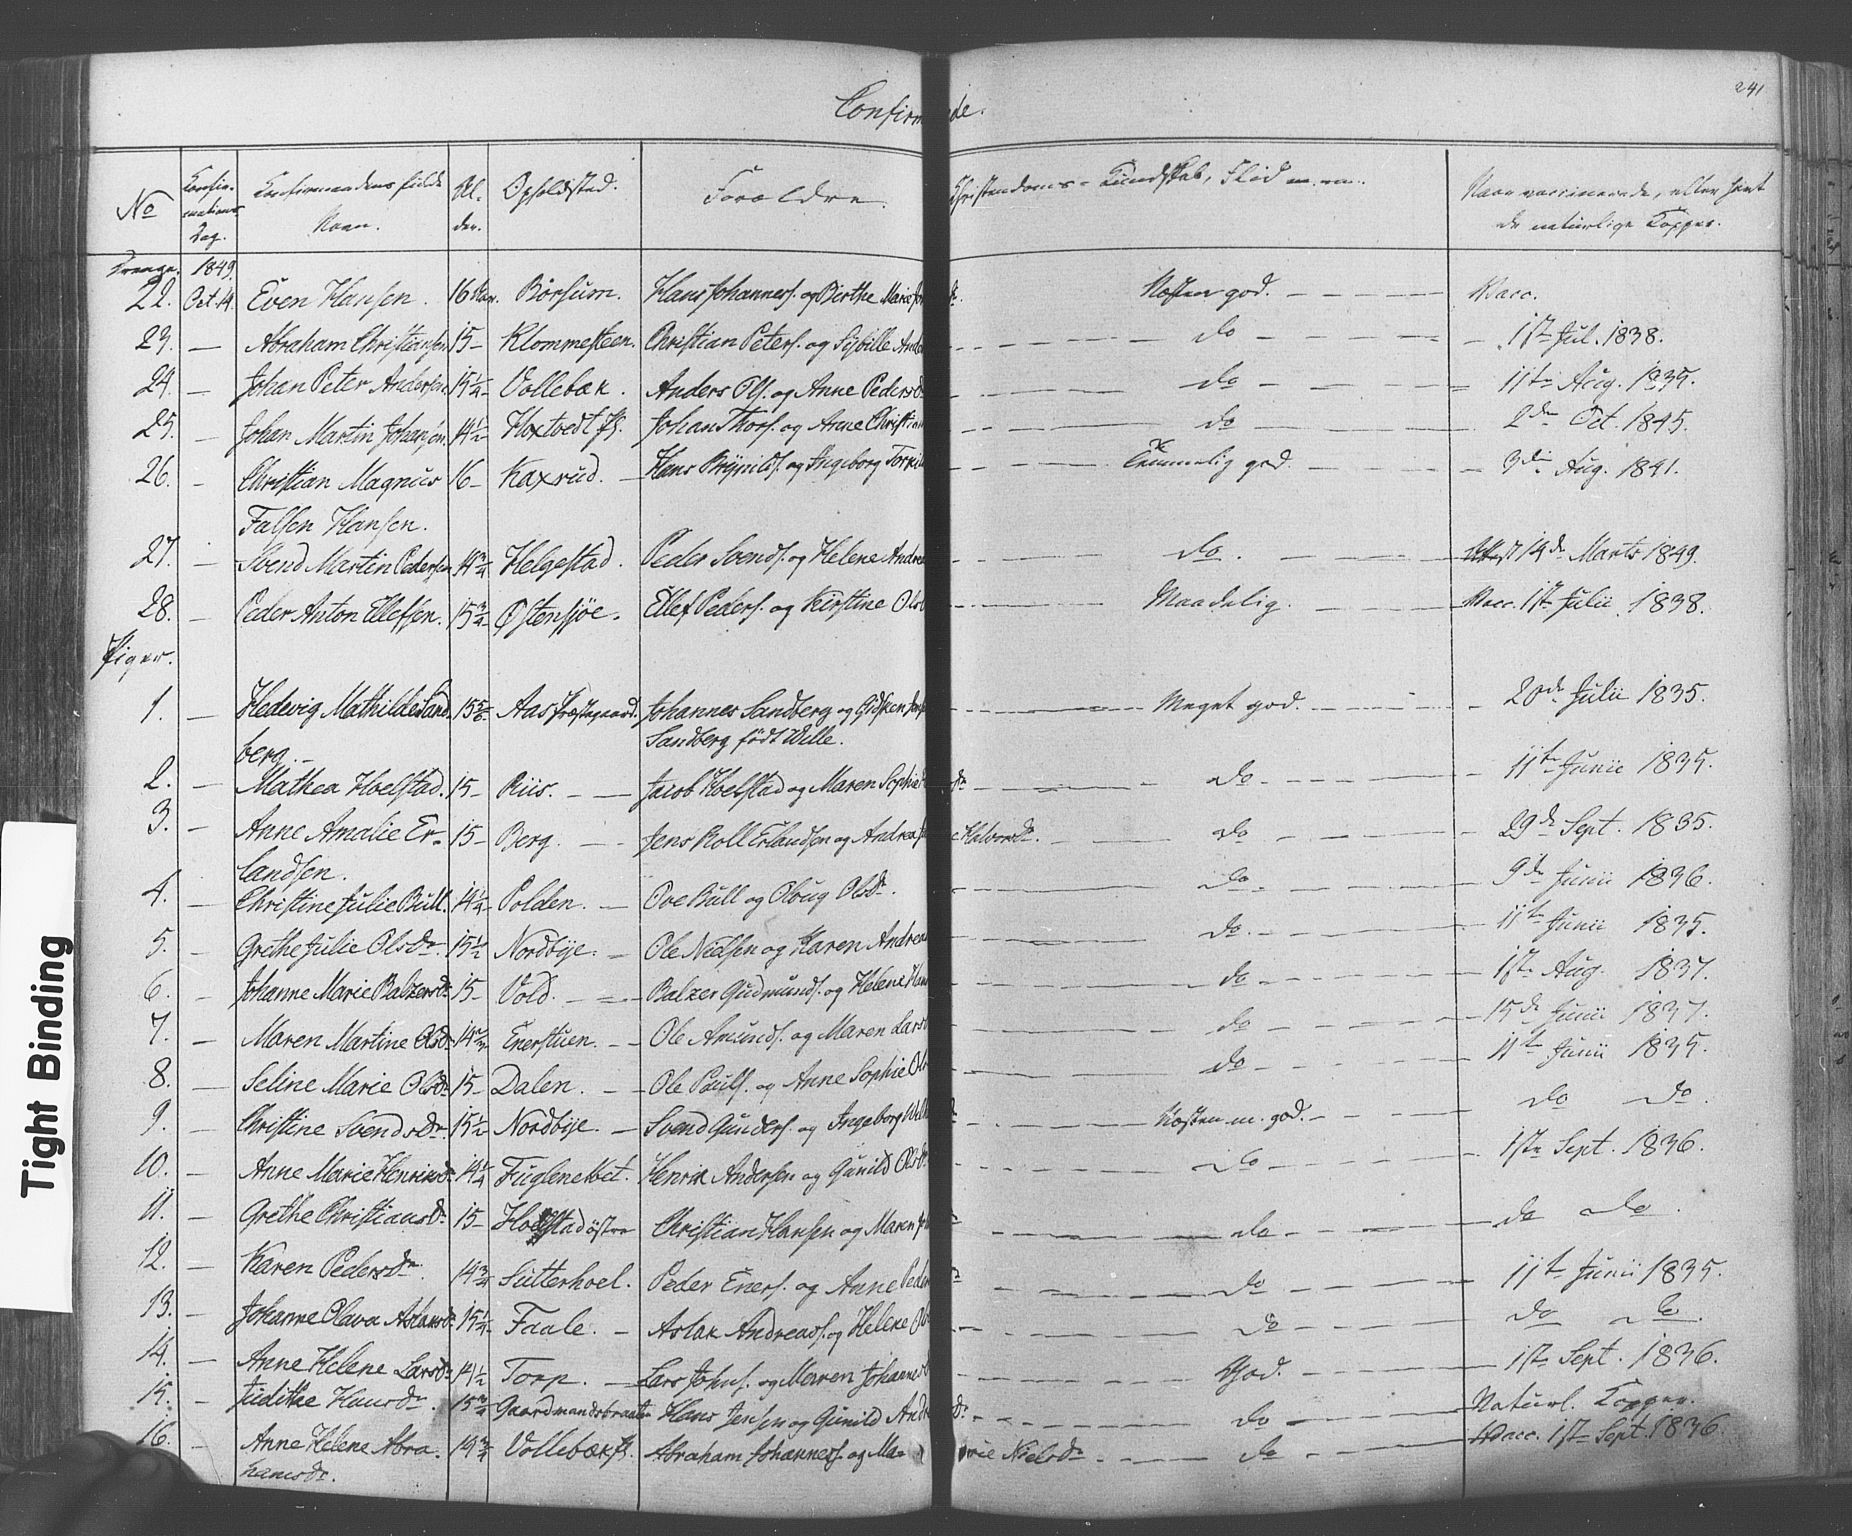 Confirmerede.
241
No
Confirmations Dag.
Confirmandens fulde Navn.
Alder.
Opholdsted.
Forældre.
Christendoms-Kundskab, Flid m.m.
Naar vaccinerede, eller havt de naturlige Kopper.
Drenge. 1849.
22. Oct. 14. Even Hansen. 16 Børsum. Hans Johanness. og Birthe Marie Næsten god. Vacc.
23. Abraham Christiansen 15 Klommesteen. Christian Peters. og Sybille do 1ste Jul. 1838.
24. Johan Peter Andersen 15 1/4 Vollebæk. Anders Ols. og Anne Pedersd. do 11te Aug. 1835.
25. Johan Martin Johansen. 14 1/2 Hoxtvedt Johan Thors. og Anne Christian do 2den Oct. 1845.
26. Christian Magnus 16 Kaxrud. Hans Brynilds. og Ingeborg Temmelig god. 3die Aug. 1841.
Falsen Hansen.
27. Svend Martin Pedersen 14 3/4 Helgestad. Peder Svends. og Helene Andrea do. 14de Marts 1849.
28. Peder Anton Ellefsen. 15 3/4 Østensjøe. Ellef Peders. og Kirstine Ols Maadelig. Vacc. 1ste Julii 1838.
Piger.
1. Hedevig Mathilde Sand 15 5/6 Aas Præstegaard. Johannes Sandberg og Gidsken Meget god. 20de Julii 1835.
berg. Sandberg født Wille.
2. Mathea Hoelstad. 15 Riis. Jacob Hoelstad og Maren Sophie do 11te Junii 1835.
3. Anne Amalie Er- 15 Berg. Jens Roll Erlandsen og Andrea Halvorsdr. do 29de Sept. 1835.
landsen.
4. Christine Julie Bull. 14 1/4 Polden. Ove Bull og Oloug Olsdr. do 9de Junii 1836.
5. Grethe Julie Olsdr. 15 1/2 Nordbye. Ole Nielsen og Karen Andrea do. 11te Junii 1835.
6. Johanne Marie Balzersdr 15 Vold. Balzer Gudmunds. og Helene Hans do 1ste Aug. 1837.
7. Maren Martine Olsdr 14 2/3 Enerstuen. Ole Amunds. og Maren Lars do 15de Junii 1837.
8. Seline Marie Olsdr 15 Dalen. Ole Pouls. og Anne Sophie Ols do 11te Junii 1835.
9. Christine Svendsdr. 15 1/2 Nordbye. Svend Gunders. og Ingeborg Næsten m. god. do do
10. Anne Marie Henriksdr 14 1/4 Fugleneblet. Henrik Andersen og Gunild Ols do 1ste Sept. 1836.
11. Grethe Christiansdr 15 Hoelstad østre Christian Hansen og Maren do do do.
12. Karen Pedersdr. 14 3/4 Sutterhoel. Peder Eners. og Anne Peders do 11te Junii 1835.
13. Johanne Olava Aslaksdr 15 1/4 Faale. Aslak Andreas. og Helene Ols do do do.
14. Anne Helene Larsdr 14 1/2 Torp. Lars Johns. og Maren Johannes God. 1ste Sept. 1836.
15. Judithe Hansdr. 15 3/4 Gaardmandsbraaten Hans Jensen og Gunild Andr do Naturl. Kopper.
16. Anne Helene Abra 14 3/4 Vollebæk Abraham Johanness. og Marie Nielsdr. do Vacc. 1ste Sept. 1836.
hamsdr.
Tight Binding